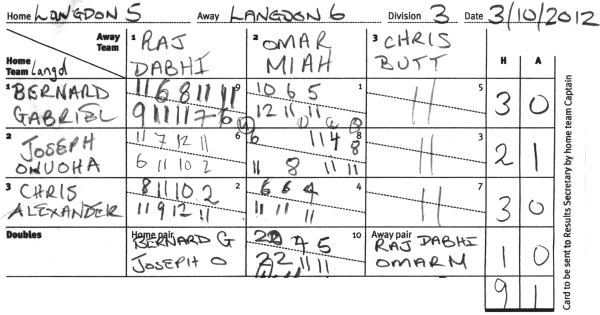 Home LANGDON 5 Away LANGDON 6 Division 3 Date 3/10/2012
Away Team 1 RAJ DABHI 2 OMAR MIAH 3 CHRIS BUTT H A
Home Team Langd
1 BERNARD GABRIEL 9 1 5 3 0
11 6 8 11 11 10 6 5 11
9 11 11 7 6 12 11 11
2 JOSEPH ONUOHA 6 8 3 2 1
11 7 12 11 6 11 4 8 11
6 11 10 2 11 8 11 11
3 CHRIS ALEXANDER 2 4 7 3 0
8 11 10 2 6 6 4 11
11 9 12 11 11 11 11
Doubles Home pair BERNARD G JOSEPH O 10 Away pair RAJ DABHI OMAR M 1 0
7 5
11 11
9 1
Card to be sent to Results Secretary by home team Captain